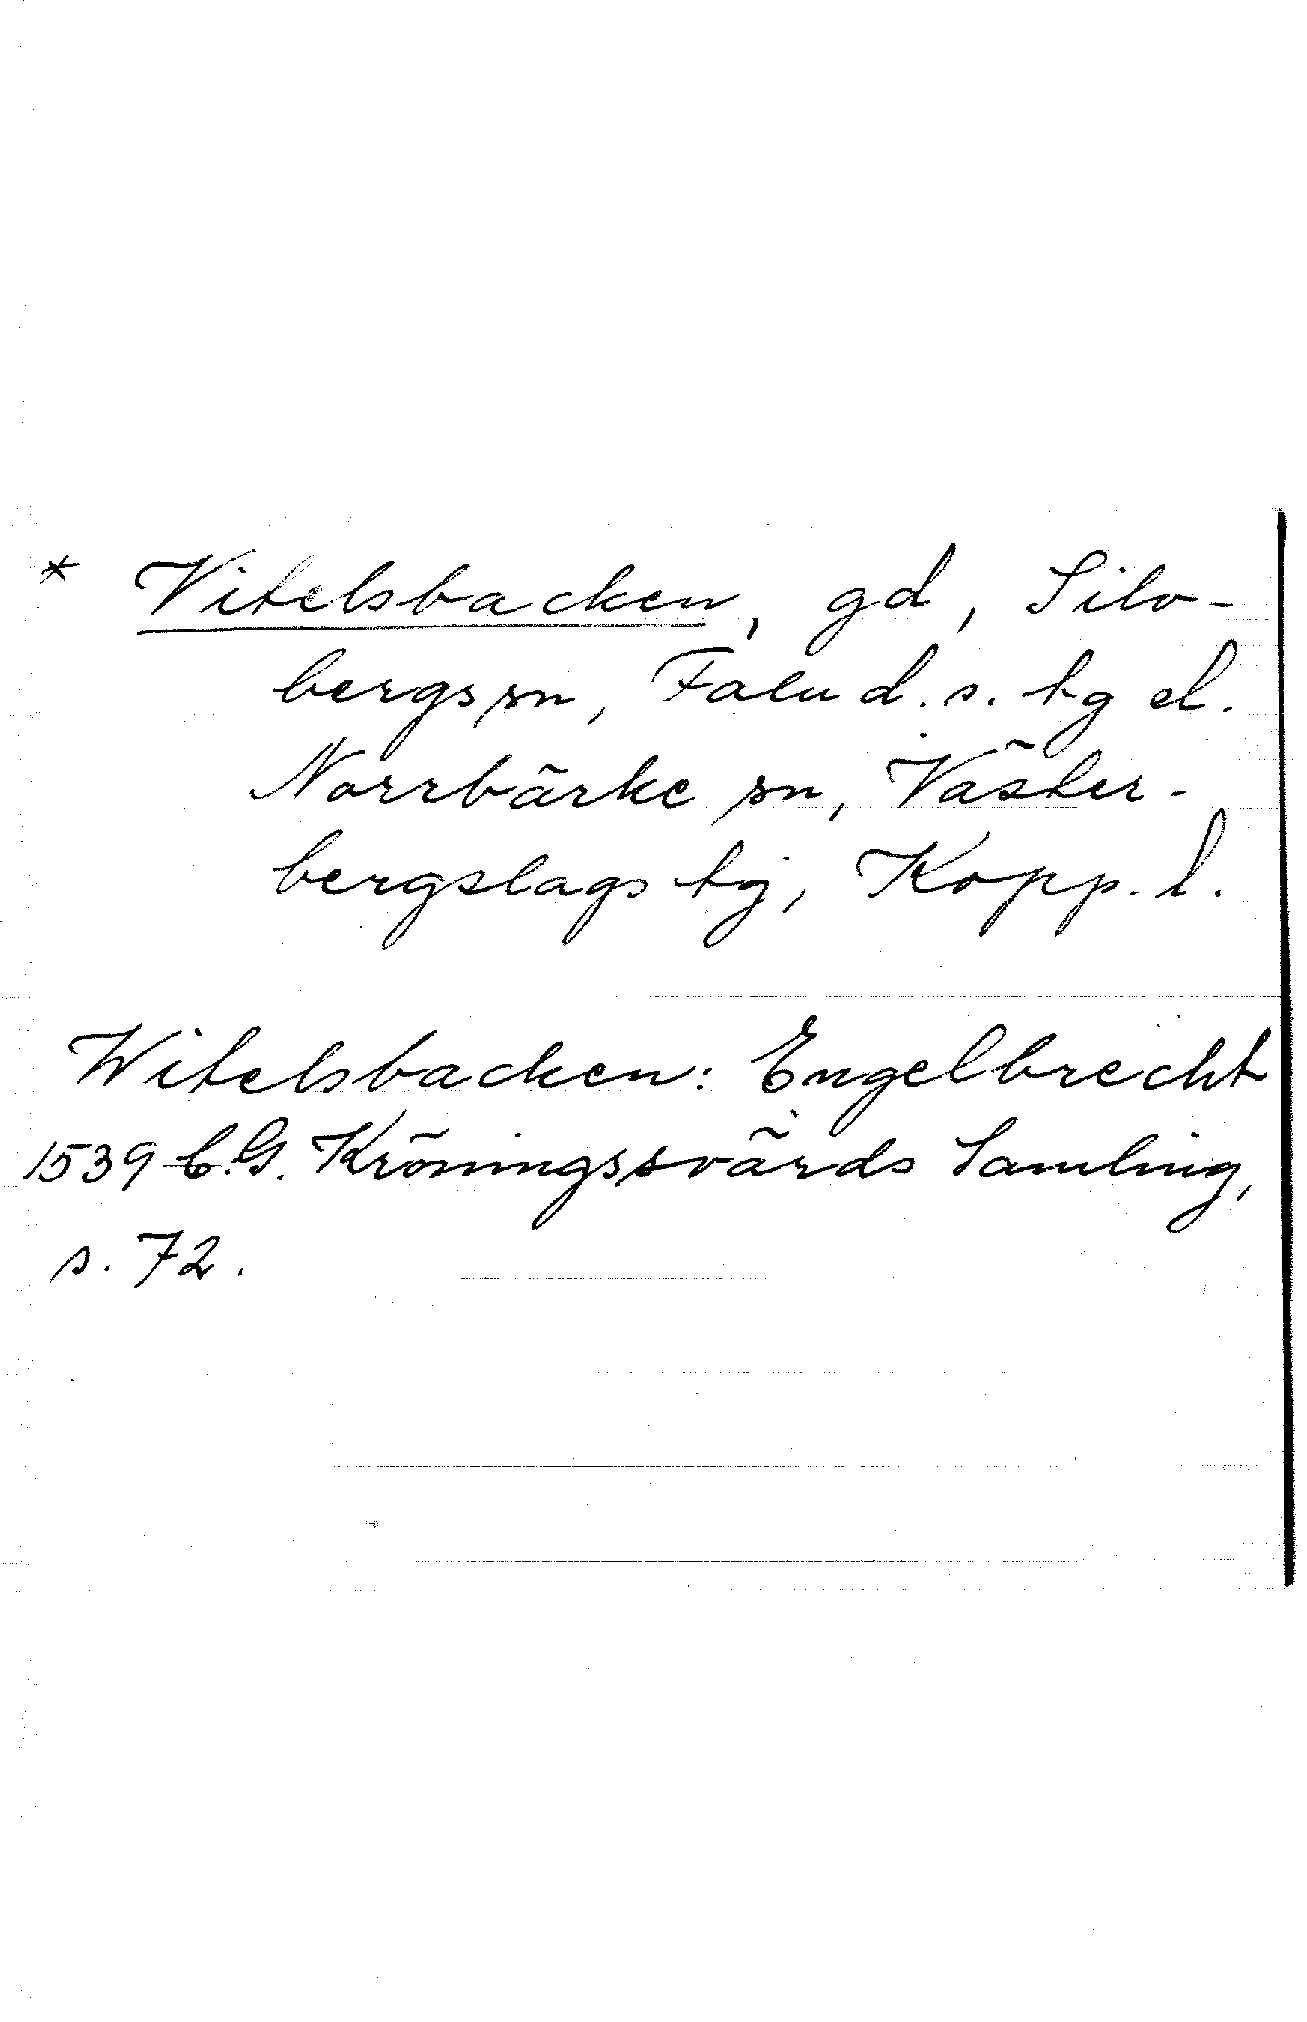 * Vitelsbacken, gd, Silv-
bergs sn, Falu d. s. tg el.
Norrbärke sn, Väster-
bergslags tg, Kopp. l.
Witelsbacken: Engelbrecht
1539 C. G. Kröningssvärds Samling,
s. 72.